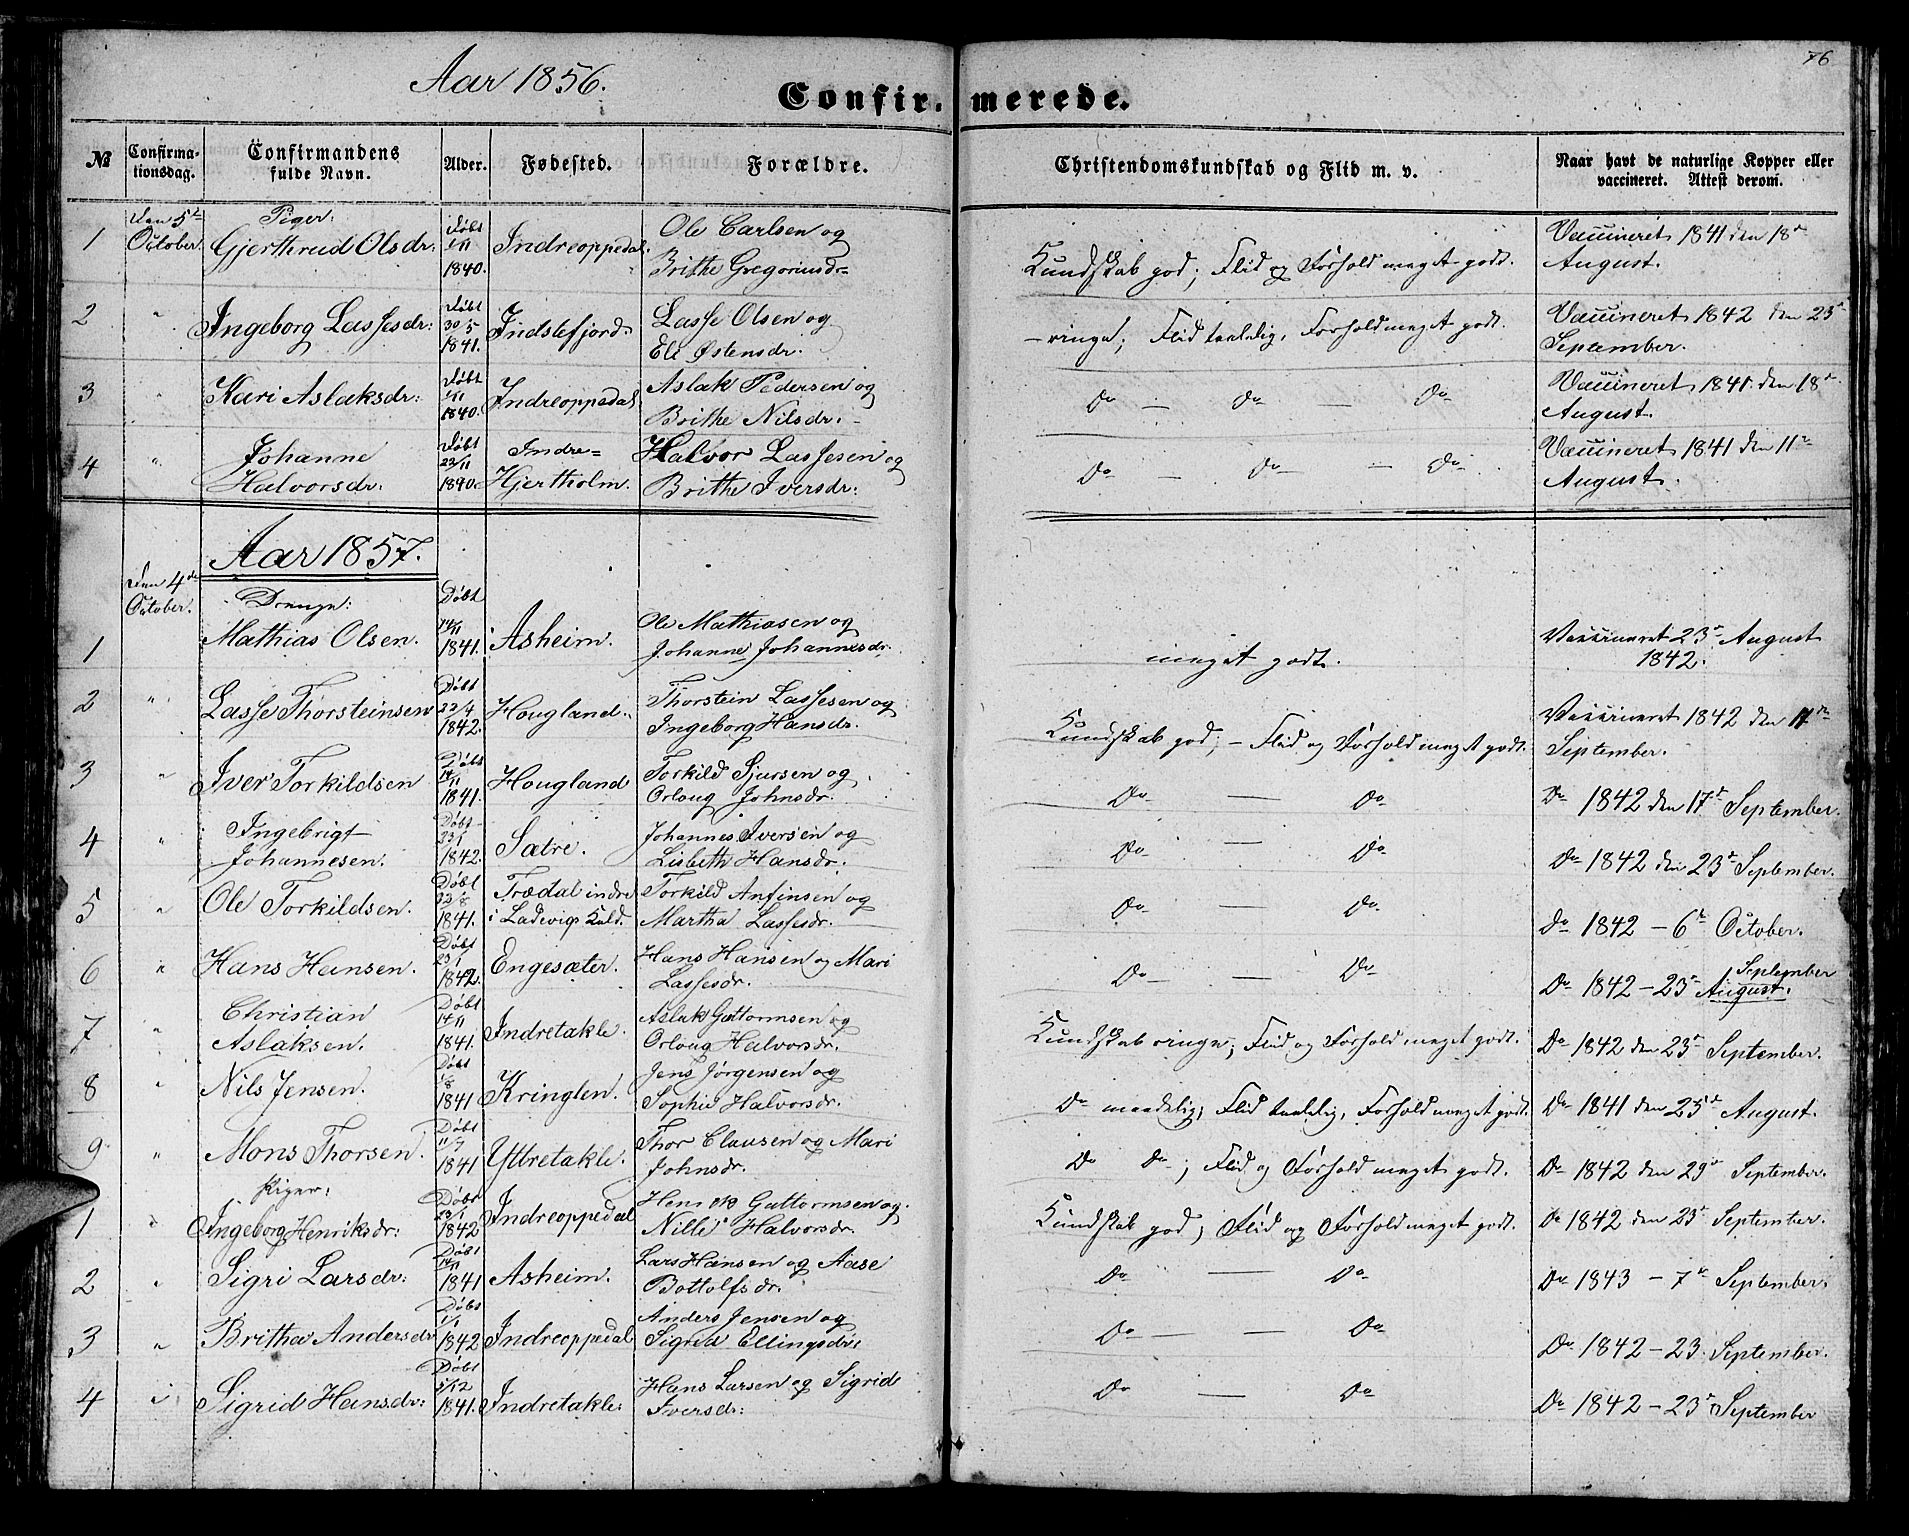 76
Aar 1856.
Confirmerede.
№
Confirmationsdag.
Confirmandens fulde Navn.
Alder.
Fødested.
Forældre.
Christendomskundskab og Flid m. v.
Naar havt de naturlige Kopper eller vaccineret. Attest derom.
Piger:
1 Den 5te October. Gjerthrud Olsdr: Døbt 1/11 1840. Indreoppedal. Ole Carlsen og Brithe Gregoriusdr. Kundskab god; Flid og Forhold meget godt. Vaccineret 1841 den 18de August.
2 " Ingeborg Lassesdr: Døbt 30/5 1841. Indstefjord. Lasse Olsen og Eli Østensdr. – ringe; Flid taalelig, Forhold meget godt. Vaccineret 1842 den 23de September.
3 " Kari Aslaksdr: Døbt 1/11 1840. Indreoppedal Aslak Pedersen og Brithe Nilsdr. Do — Do — Do Vaccineret 1841. den 18de August.
4 " Johanne Halvorsdr: Døbt 22/11 1840. Indre= Hjertholm. Halvor Lassesen og Brithe Iversdr: Do — Do — Do Vaccineret 1841 den 11te August.
Aar 1857.
Drenge:
1 Den 4de October. Mathias Olsen. Døbt 14/11 1841. Asheim. Ole Mathiasen og Johanne Johannesdr. meget godt. Vaccineret 23de August 1842.
2 " Lasse Thorsteinsen Døbt 22/4 1842. Hougland. Thorstein Lassesen og Ingeborg Hansdr. Kundskab god; – Flid og Forhold meget godt. Vaccineret 1842 den 17de September.
3 " Iver Torkildsen Døbt 14/11 1841. Hougland Torkild Sjursen og Orloug Johnsdr. Do — Do Do 1842 den 17de September.
4 " Ingebrigt Johannesen. Døbt 23/1 1842. Sætre. Johannes Iversen og Lisbeth Hansdr. Do — Do Do 1842 den 23de September.
5 " Ole Torkildsen. Døbt 22/8 1841. Trædal indre i Ladevigs Kald. Torkild Anfinsen og Martha Lassesdr. Do — Do Do 1842 – 6te October.
6 " Hans Hansen. Døbt 23/1 1842. Engesæter. Hans Hansen og Mari Lassesdr. Do — Do Do 1842 – 23de August. September
7 " Christian Aslaksen. Døbt 14/11 1841. Indretakle. Aslak Guttormsen og Orloug Halvorsdr. Kundskab ringe; Flid og Forhold meget godt. Do 1842 den 23de September.
8 " Nils Jensen. Døbt 1/8 1841 Kringlen. Jens Jørgensen og Sophie Halvorsdr. Do maadelig; Flid taalelig, Forhold meget godt. Do 1841 den 25de August.
9 " Mons Thorsen. Døbt 11/7 1841 Yttretakle. Thor Clausen og Mari Johnsdr. Do Do; Flid og Forhold meget godt. Do 1842 den 29de September.
Piger:
1 " Ingeborg Henriksdr: Døbt 23/1 1842 Indreoppedal Henrik Guttormsen og Nille Halvorsdr. Kundskab god; Flid og Forhold meget godt. Do 1842 den 23de September.
2 " Sigri Larsdr: Døbt 14/11 1841 Asheim. Lars Hansen og Aase Bottolfsdr. Do — Do Do 1843 – 7de September.
3 " Britha Andersdr Døbt 1/1 1842 Indreoppedal Anders Jensen og Sigrid Ellingsdr: Do — — Do Do 1842 – 23. September.
4 " Sigrid Hansdr: Døbt 5/12 1841. Indretakle: Hans Larsen og Sigrid Iversdr: Do — Do Do 1842 – 23de September